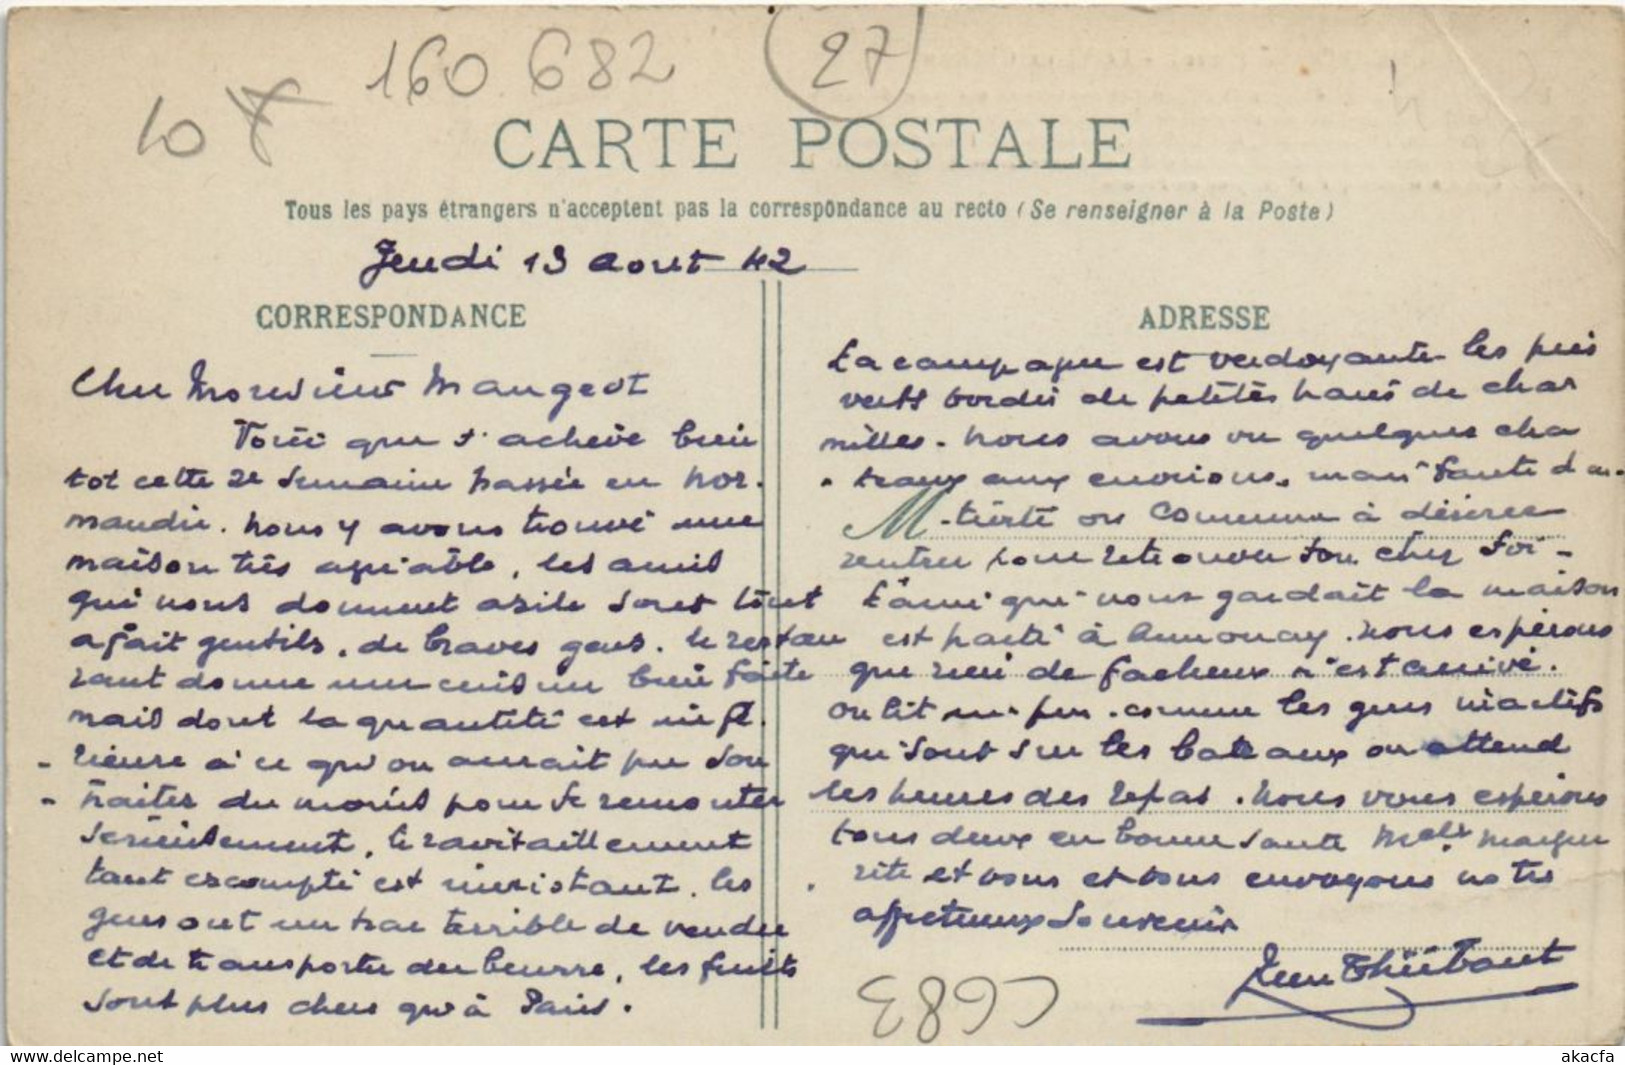 160 682
27
10
CARTE POSTALE
Tous les pays étrangers n'acceptent pas la correspondance au recto (Se renseigner à la Poste)
Jeudi 13 Aout 42
CORRESPONDANCE
Cher Monsieur Mangeot
Voici que s'achève bien
tot cette 2e semaine passée en Nor-
mandie. Nous y avons trouvé une
maison très agréable, les amis
qui nous donnent asile sont tout
a fait gentils, de braves gens. le restau
rant donne une cuisine bien faite
mais dont la quantité est infé-
-rieure à ce qu'on aurait pu sou
-haiter du moins pour se remonter
sérieusement, le ravitaillement
tant escompté est inexistant. les
gens ont un trac terrible de vendre
et de transporter du beurre, les fruits
sont plus chers qu'à Paris.
ADRESSE
La campagne est verdoyante les prés
verts bordés de petites haies de char
milles. Nous avons vu quelques cha
-teaux aux environs, mais faute d'ac-
M -tivité on commence à désirer
rentrer pour retrouver son cher foi-
L'ami qui nous gardait la maison
est parti à Annonay. Nous espérons
que rien de facheux n'est arrivé.
on lit un peu. comme les gens inactifs
qui sont sur les bateaux on attend
les heures des repas. Nous vous espérons
tous deux en bonne santé Melle Margue
rite et vous et vous envoyons notre
affectueux souvenir
Jean Thiébaut
C683
www.hippostcard.com
akacfa